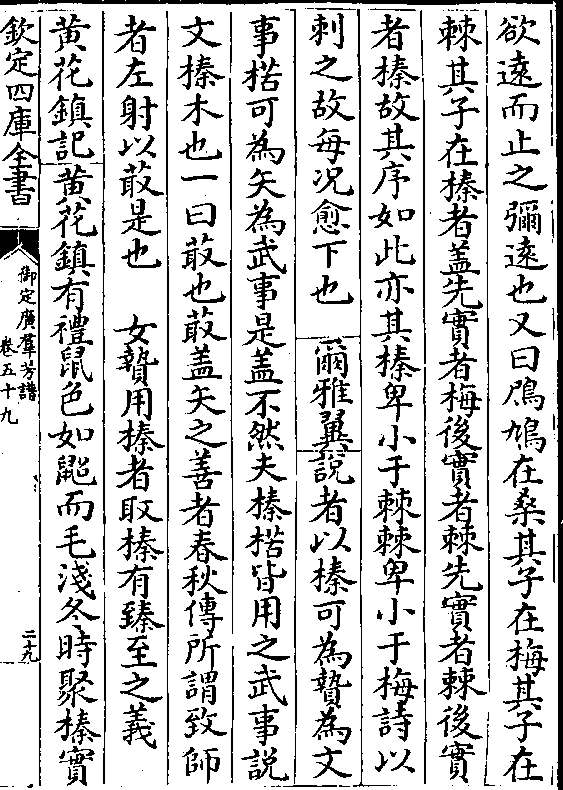 欲遠而止之彌遠也又曰鳲鳩在桑其子在梅其子在
棘其子在榛者盖先實者梅後實者棘先實者棘後實
者榛故其序如此亦其榛卑小于棘棘卑小于梅詩以
刺之故每况愈下也 爾雅翼說者以榛可為贄為文
事楛可為矢為武事是盖不然夫榛楛皆用之武事説
文榛木也一曰菆也菆盖矢之善者春秋傳所謂致師
者左射以菆是也 女贄用榛者取榛有臻至之義
黄花鎮記黄花鎮有禮鼠色如鼬而毛淺冬時聚榛實
欽定四庫全書
御定廣羣芳譜
卷五十九
二十九